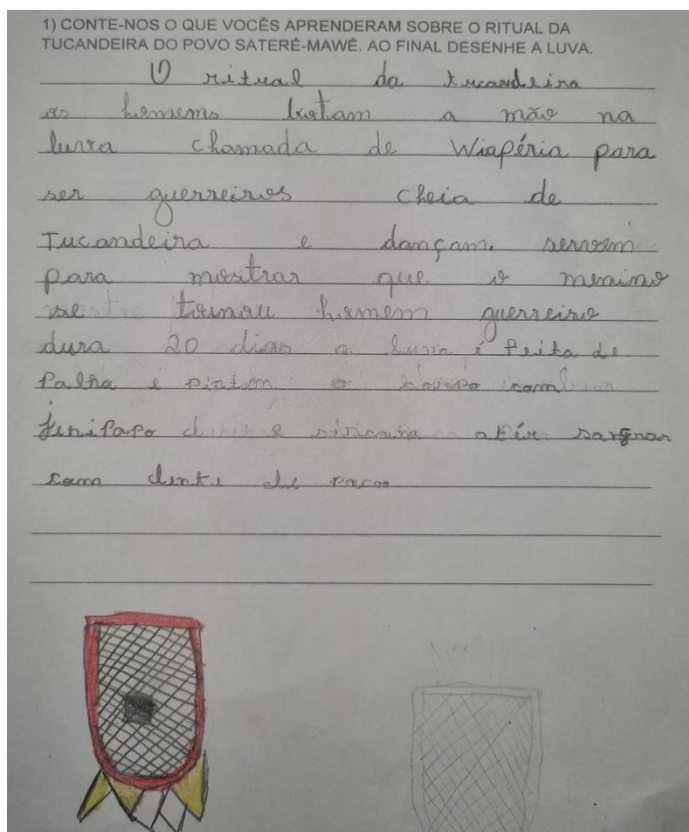 1) CONTE-NOS O QUE VOCÊS APRENDERAM SOBRE O RITUAL DA
TUCANDEIRA DO POVO SATERÊ-MAWÉ. AO FINAL DESENHE A LUVA.
O ritual da tucandeira
os homems botam a mão na
luva chamada de Wiapéria para
ser guerreiros cheia de
Tucandeira e dançam. servem
para mostrar que o menino
se tornou homem guerreiro
dura 20 dias a luva é feita de
Palha e pintam o corpo com
jenipapo atír
com dente de paca